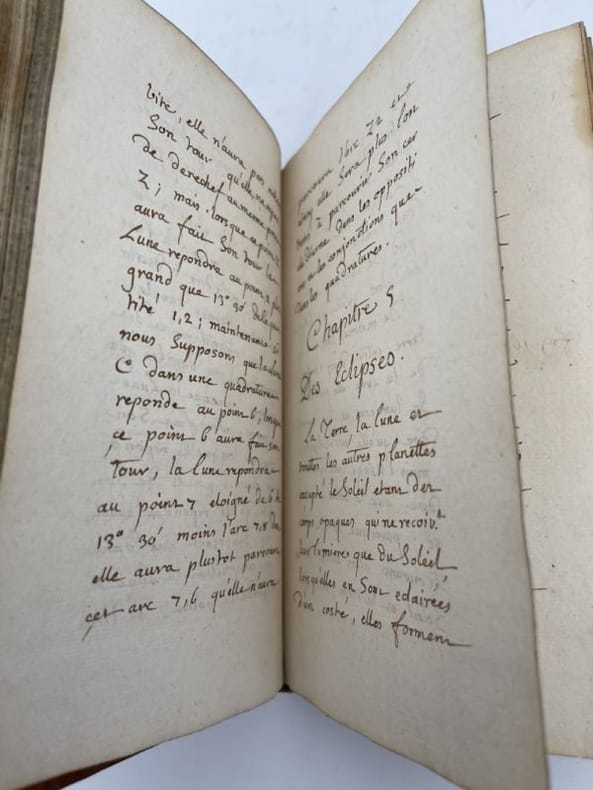 vite, elle n'aura pas
Son tour qu'elle ne
de derechef au meme
2; mais, lorsque ce point
aura fait Son tour la
Lune repondre au point 2 plus
grand que 13° 30' de la
tité 1,2; maintenance si
nous Supposons que la lune
C dans une quadrature
reponde au point 6; lorsque
çe point 6 aura fait son
Tour, la Lune repondra
au point 7 eloigné de 6 de
13° 30' moins l'arc 7,8 donc
elle aura plustot parcouru
çet arc 7,6 qu'elle n'aura
parcouru l'arc Z2 et
elle Sera plus lon
à parcourir Son cer
Diurne Dans les oppositi
ou les conjonctions que
Dans les quadratures.
Chapitre 5
Des Eclipses.
La Terre la Lune et
touttes les autres planettes
excepté le Soleil etant des
corps opaques qui ne recoivt
leur lumieres que du Soleil,
lorsqu'elles en Sont eclairées
d'un costé, elles forment